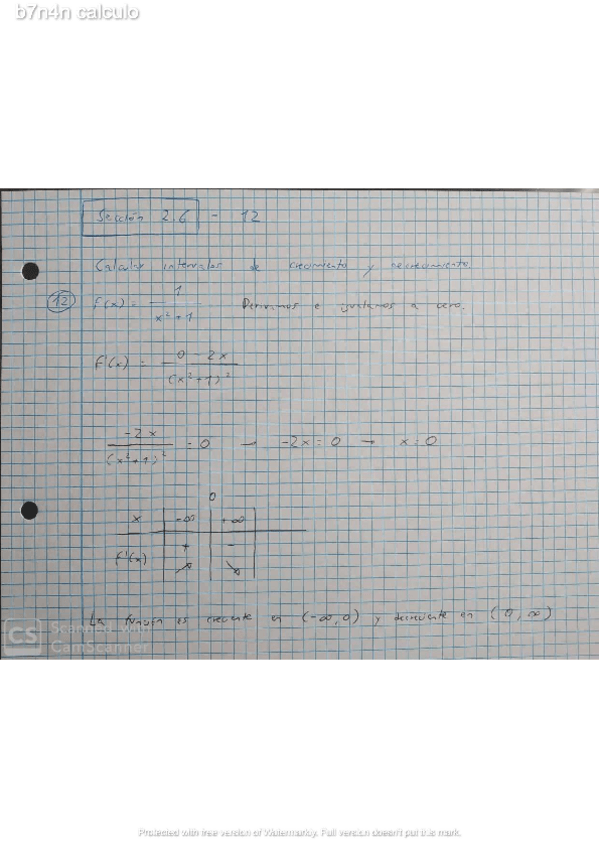 b7n4n calculo
Sección 2.6 - 12
Calcular intervalos de crecimiento y decrecimiento
12 f(x) = 1 / (x² + 1) Derivamos e igualamos a cero.
f'(x) = 0 - 2x / (x² + 1)²
-2x / (x² + 1)² = 0 → -2x = 0 → x = 0
0
x | -∞ | +∞ |
f'(x) | + | - |
↗ ↘
La función es creciente en (-∞, 0) y decreciente en (0, ∞)
CS Scanned with
CamScanner
Protected with free version of Watermarkly. Full version doesn't put this mark.